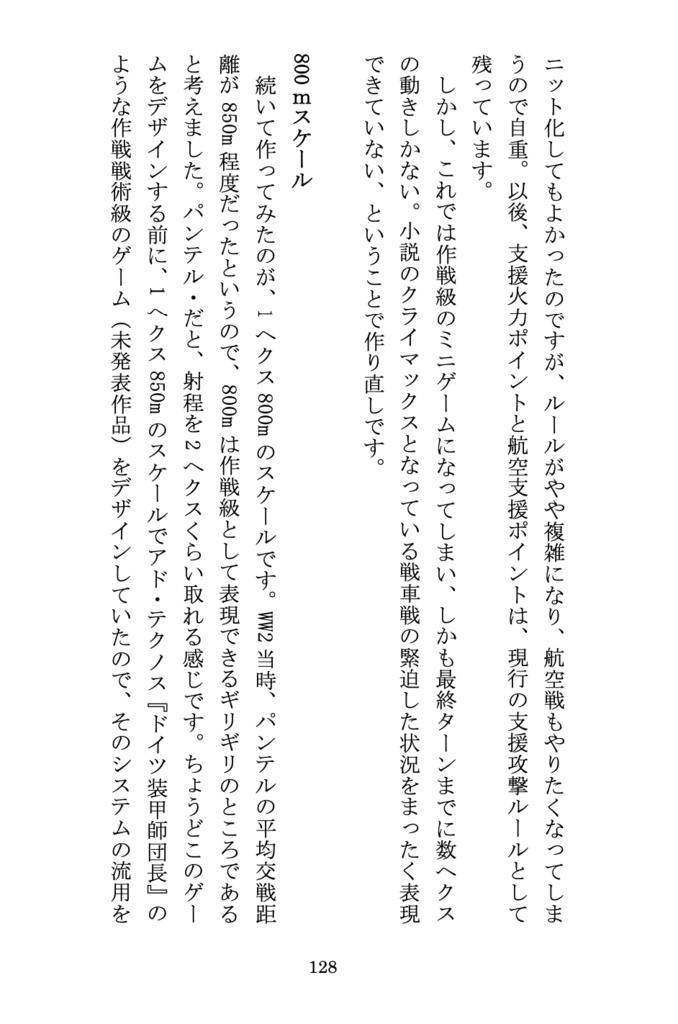 ニット化してもよかったのですが、ルールがやや複雑になり、航空戦もやりたくなってしま
うので自重。以後、支援火力ポイントと航空支援ポイントは、現行の支援攻撃ルールとして
残っています。
しかし、これでは作戦級のミニゲームになってしまい、しかも最終ターンまでに数ヘクス
の動きしかない。小説のクライマックスとなっている戦車戦の緊迫した状況をまったく表現
できていない、ということで作り直しです。
800 mスケール
続いて作ってみたのが、1 ヘクス 800m のスケールです。WW2 当時、パンテルの平均交戦距
離が 850m 程度だったというので、800m は作戦級として表現できるギリギリのところである
と考えました。パンテル・だと、射程を 2 ヘクスくらい取れる感じです。ちょうどこのゲー
ムをデザインする前に、1 ヘクス 850m のスケールでアド・テクノス『ドイツ装甲師団長』の
ような作戦戦術級のゲーム（未発表作品）をデザインしていたので、そのシステムの流用を
128